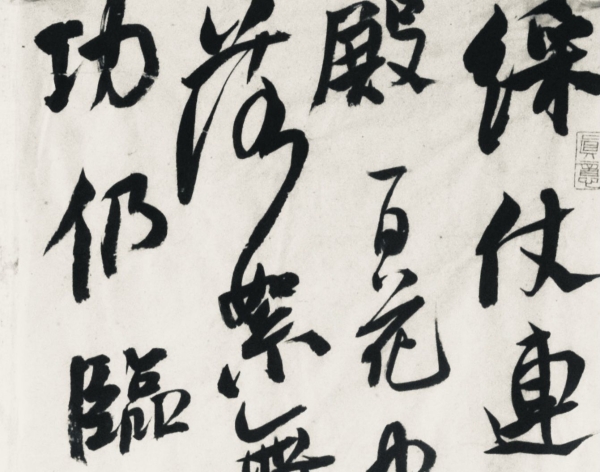 綵仗連
殿百花
落絮無
功仍臨